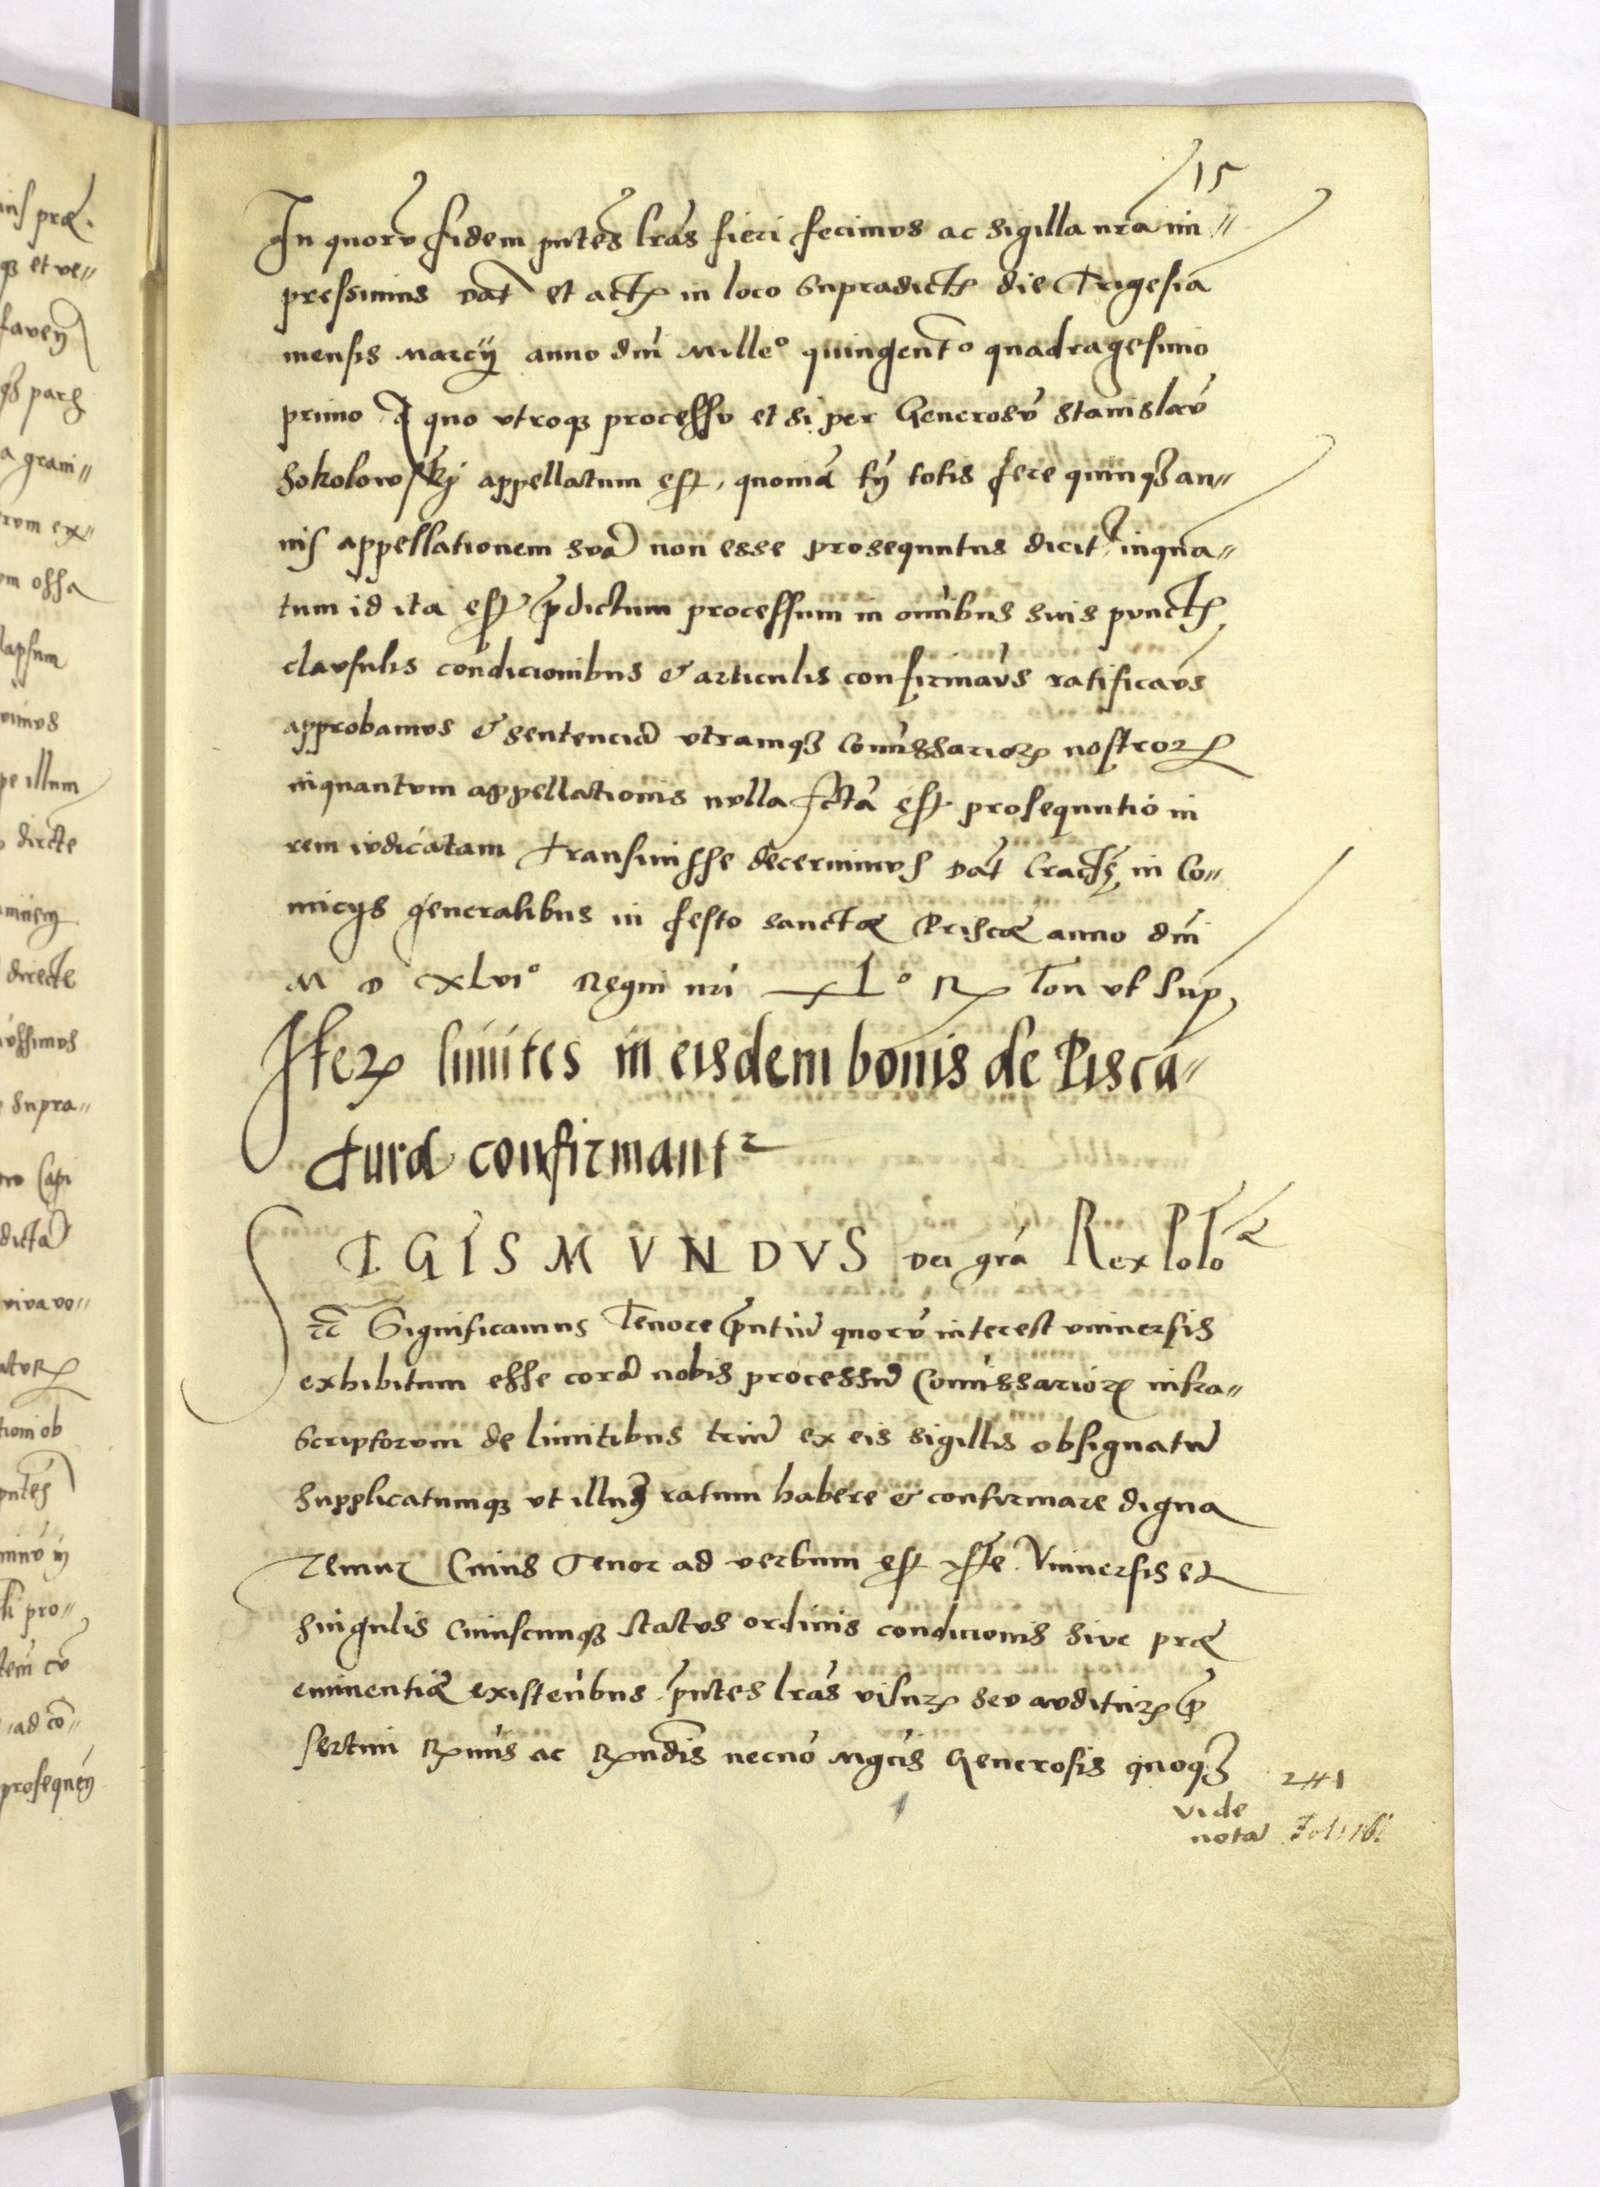 15
In quorū fidem pntes lras fieri fecimus ac sigilla nra im=
pressimus Dat et act in loco supradict die Trigesia
mensis Marcij anno dni Mille° quingent° quadragesimo
primo A quo utroq processu et si per Generosū Stanislaū
Sokolowskj appellatum est, quoniā tn totis fere quinq an=
nis appellationem suā non esse prosequutus dicit, inqua=
tum id ita est pdictum processum in omibus suis punct
clausulis condicionibus & articulis confirmaus ratificaus
approbamus & sentenciā utramq Comissarior nostror
inquantum appellationis nulla fcta est prosequutio in
rem iudicatam transiuisse decernimus Dat Crac in Co=
micijs generalibus in festo sanctæ Priscæ anno dni
M D XLVI° Regni nri XL° R Ton ut sup
Iter limites in eisdem bonis de Pisca=
tura confirmant
SIGISMVNDVS Dei gra Rex Polo
Significamus Tenore pntiū quorū interest uniuersis
exhibitum esse corā nobis processū Comissarior infra=
scriptorum de limitibus triū ex eis sigillis obsignatū
supplicatumq ut illum ratum habere & confirmare digna
remur Cuius Tenor ad verbum est iste. Vniuersis et
singulis cuiuscunq status ordinis condicionis siue præ
eminentiæ existenbus pntes lras visur seu auditur p
sertim Rmis ac Rndis necnō Mgcis Generosis quoq
241
vide
nota Fol: 16.
ins præ.
q et ve=
pars
a grani=
rum ex=
um ossa
lapsum
uimus
pe illum
dircte
directe
issimus
supra=
Capi
dictā
viva vo=
tioni ob
pntes
li pro=
ad cō=
prosequen